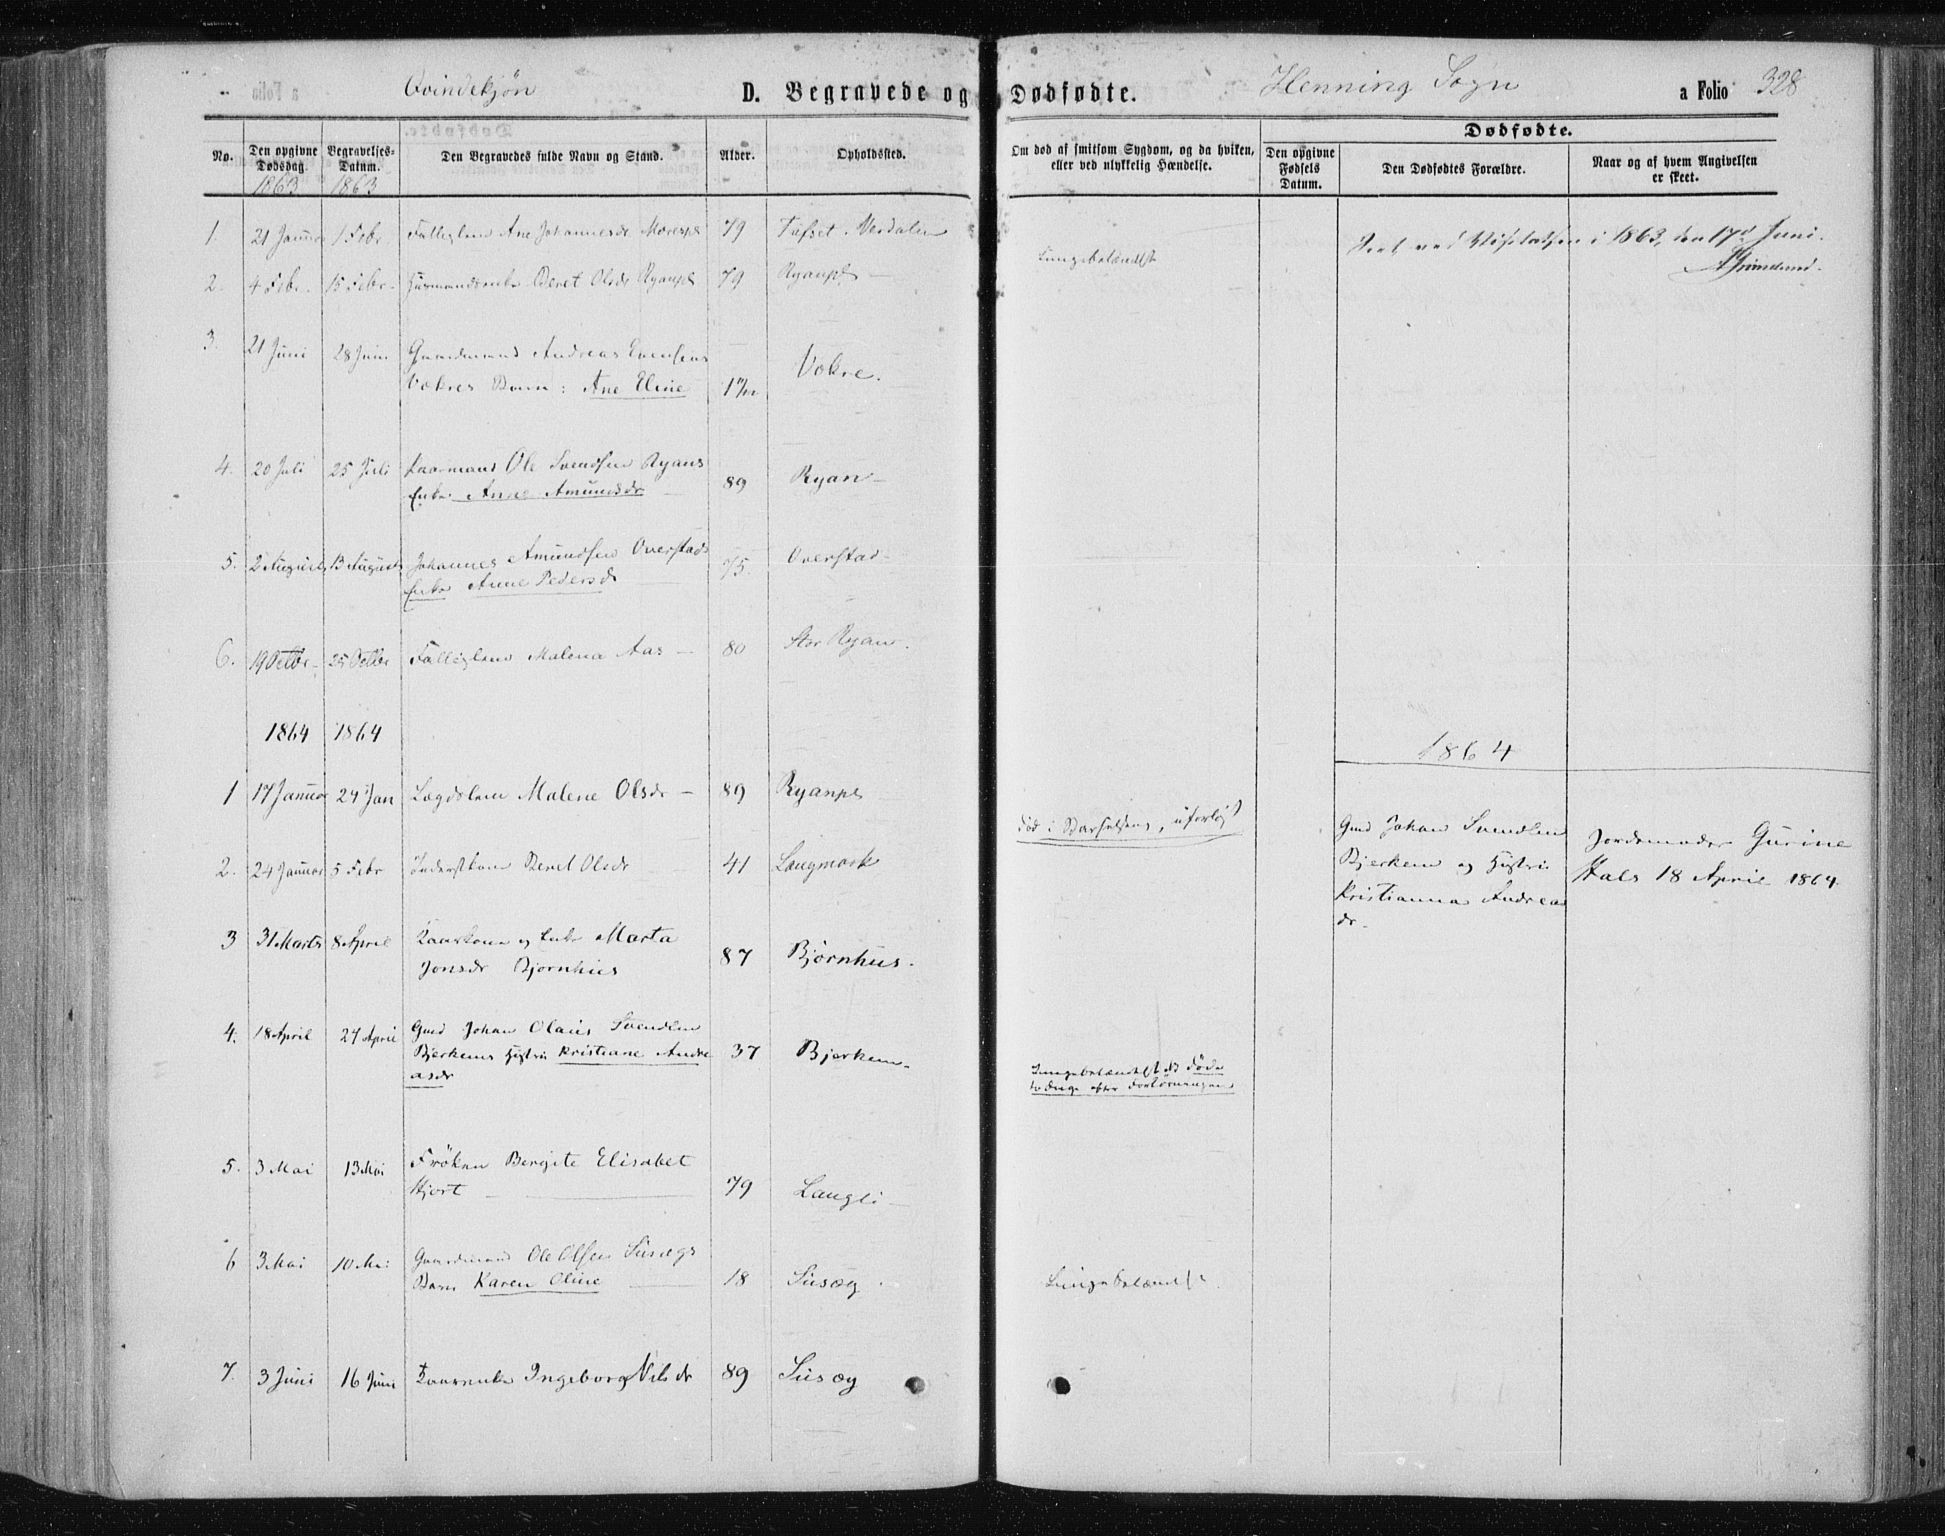 Qvindekjøn D. Begravede og Dødfødte. Henning Sogn a Folio 328
No. Den opgivne Dødsdag. Begravelses-Datum. Den Begravedes fulde Navn og Stand. Alder. Opholdssted. Om død af smitsom Sygdom, og da hviken, eller ved ulykkelig Hændelse. Dødfødte.
Den opgivne Fødsels Datum. Den Dødfødtes Forældre. Naar og af hvem Angivelsen er skeet.
1863 1863
1. 21 Januar 1 Febr Fattiglem Ane Johannesdr 79 Verdalen
i 1863, den 17d Juni.
2. 4 Febr. 15 Febr. Beret Olsdr Ryanpl 79 Ryanpl
Lungebetændelse
3. 21 Juni 28 Juni Gaardmand Andreas Evensens
Vokres Barn: Ane Eline Vokre.
4. 20 Juli 25 Juli Kaarmand Ole Svendsen Ryans
Enke Anne Amundsdr 89 Ryan
5. 2 August 13 August Johannes Amundsen Overstads
Enke Anne Pedersdr 75. Overstad
6. 19 Octbr. 25 Octbr Fattiglem Malena Aas 80 Stor Ryan.
1864 1864
1864
1 17 Januar 24 Jan Lægdslem Malene Olsdr 89 Ryanpl
2. 24 Januar 5 Febr Inderstkone Beret Olsdr 41 Langmark
død i Barselseng, uforløst
Gmd Johan Svendsen
Bjerkem og Hustru
Kristianna Andrea
dr.
Jordemoder Gurine
Hals 18 April 1864.
3 31 Marts 8 April Kaarkone og Enke Marta
Jonsdr Bjørnhus 87 Bjørnhus.
4. 18 April 24 April Gmd Johan Olaus Svendsen
Bjerkems Hustru Kristiane Andre
asdr 37 Bjerkem
Lungebetændelse
efter
5. 3 Mai 13 Mai Frøken Bergite Elisabet
Hjort 79 Langli
6 3 Mai 10 Mai Gaardmand Ole Olsen Susægs
Barn Karen Oline 18 Susæg
Lungebetændelse.
7. 3 Juni 16 Juni Kaarenke Ingeborg Nilsdr 89 Susæg